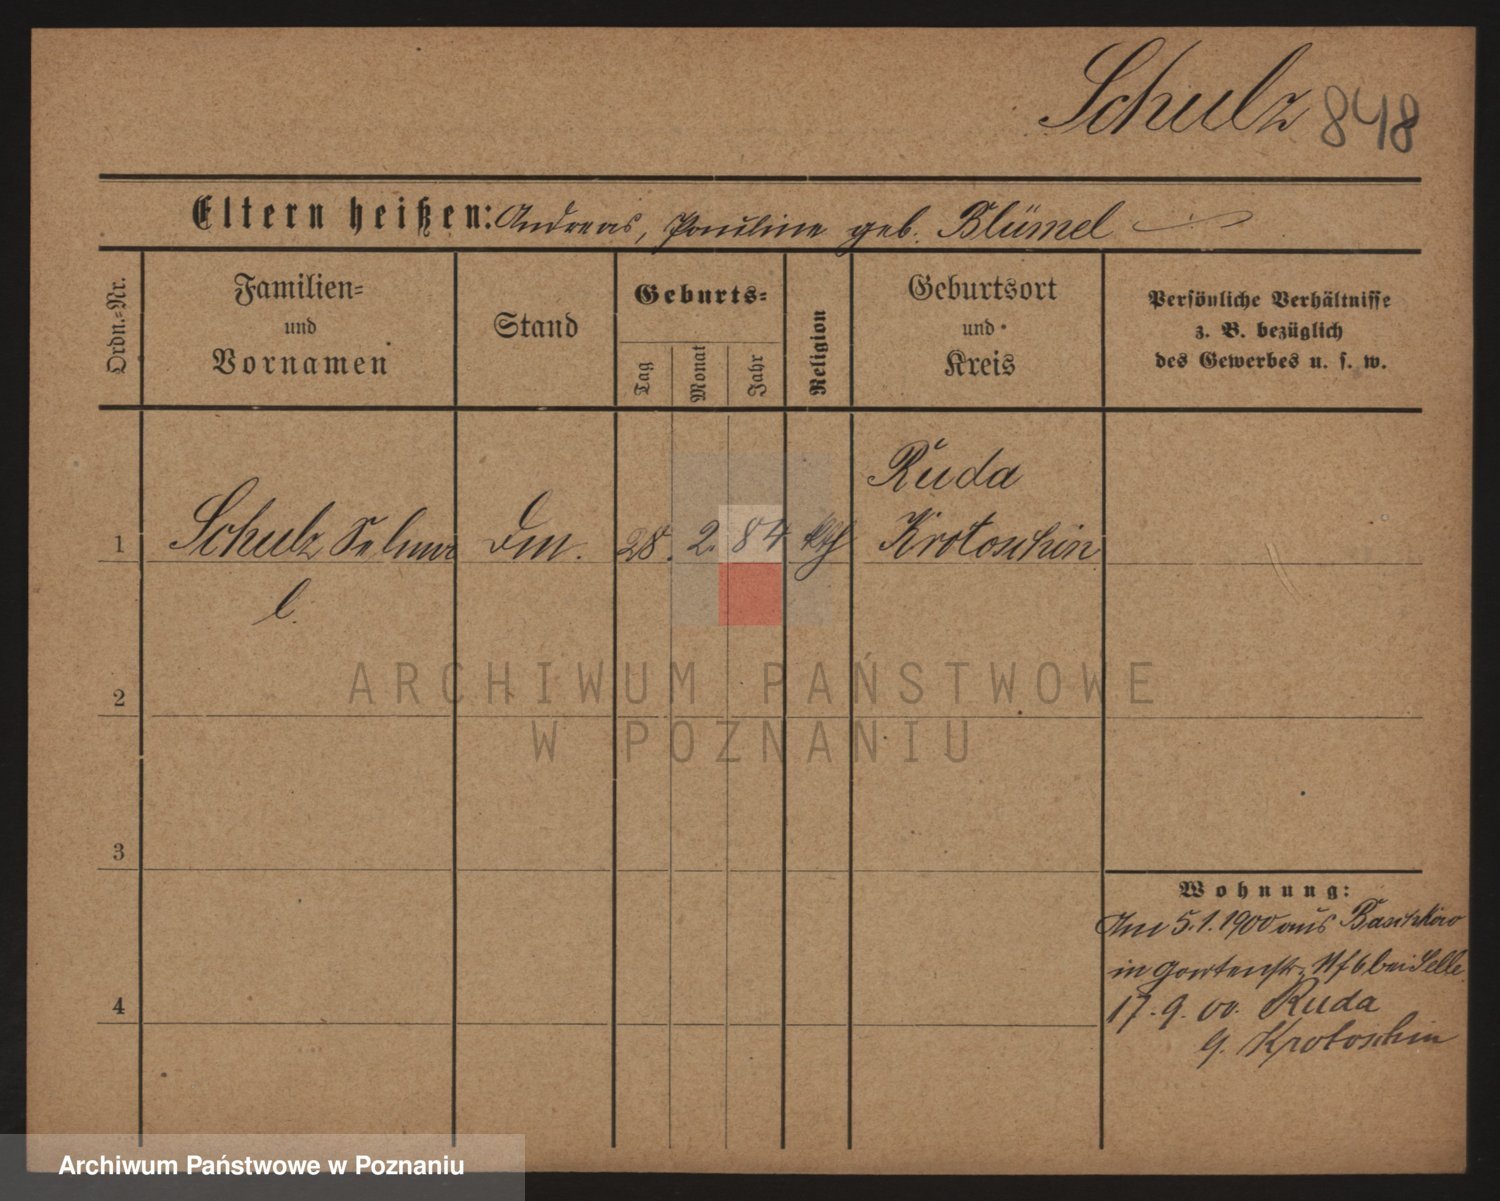 Schulz 848
Eltern heißen: Andreas, Pauline geb. Blümel
Ordn.-Nr.
Familien-
und
Vornamen
Stand
Geburts-
Tag
Monat
Jahr
Religion
Geburtsort
und
Kreis
Persönliche Verhältnisse
z. B. bezüglich
des Gewerbes u. s. w.
Ruda
1 Schulz Selma 28. 2. 84 kth Krotoschin
l.
2
ARCHIWUM PAŃSTWOWE
W POZNANIU
3
Wohnung:
5.1.1900 aus Baschkow
in Gartenstr. 6 bei Selle
4
17. 9. 00. Ruda
Krotoschin
Archiwum Państwowe w Poznaniu